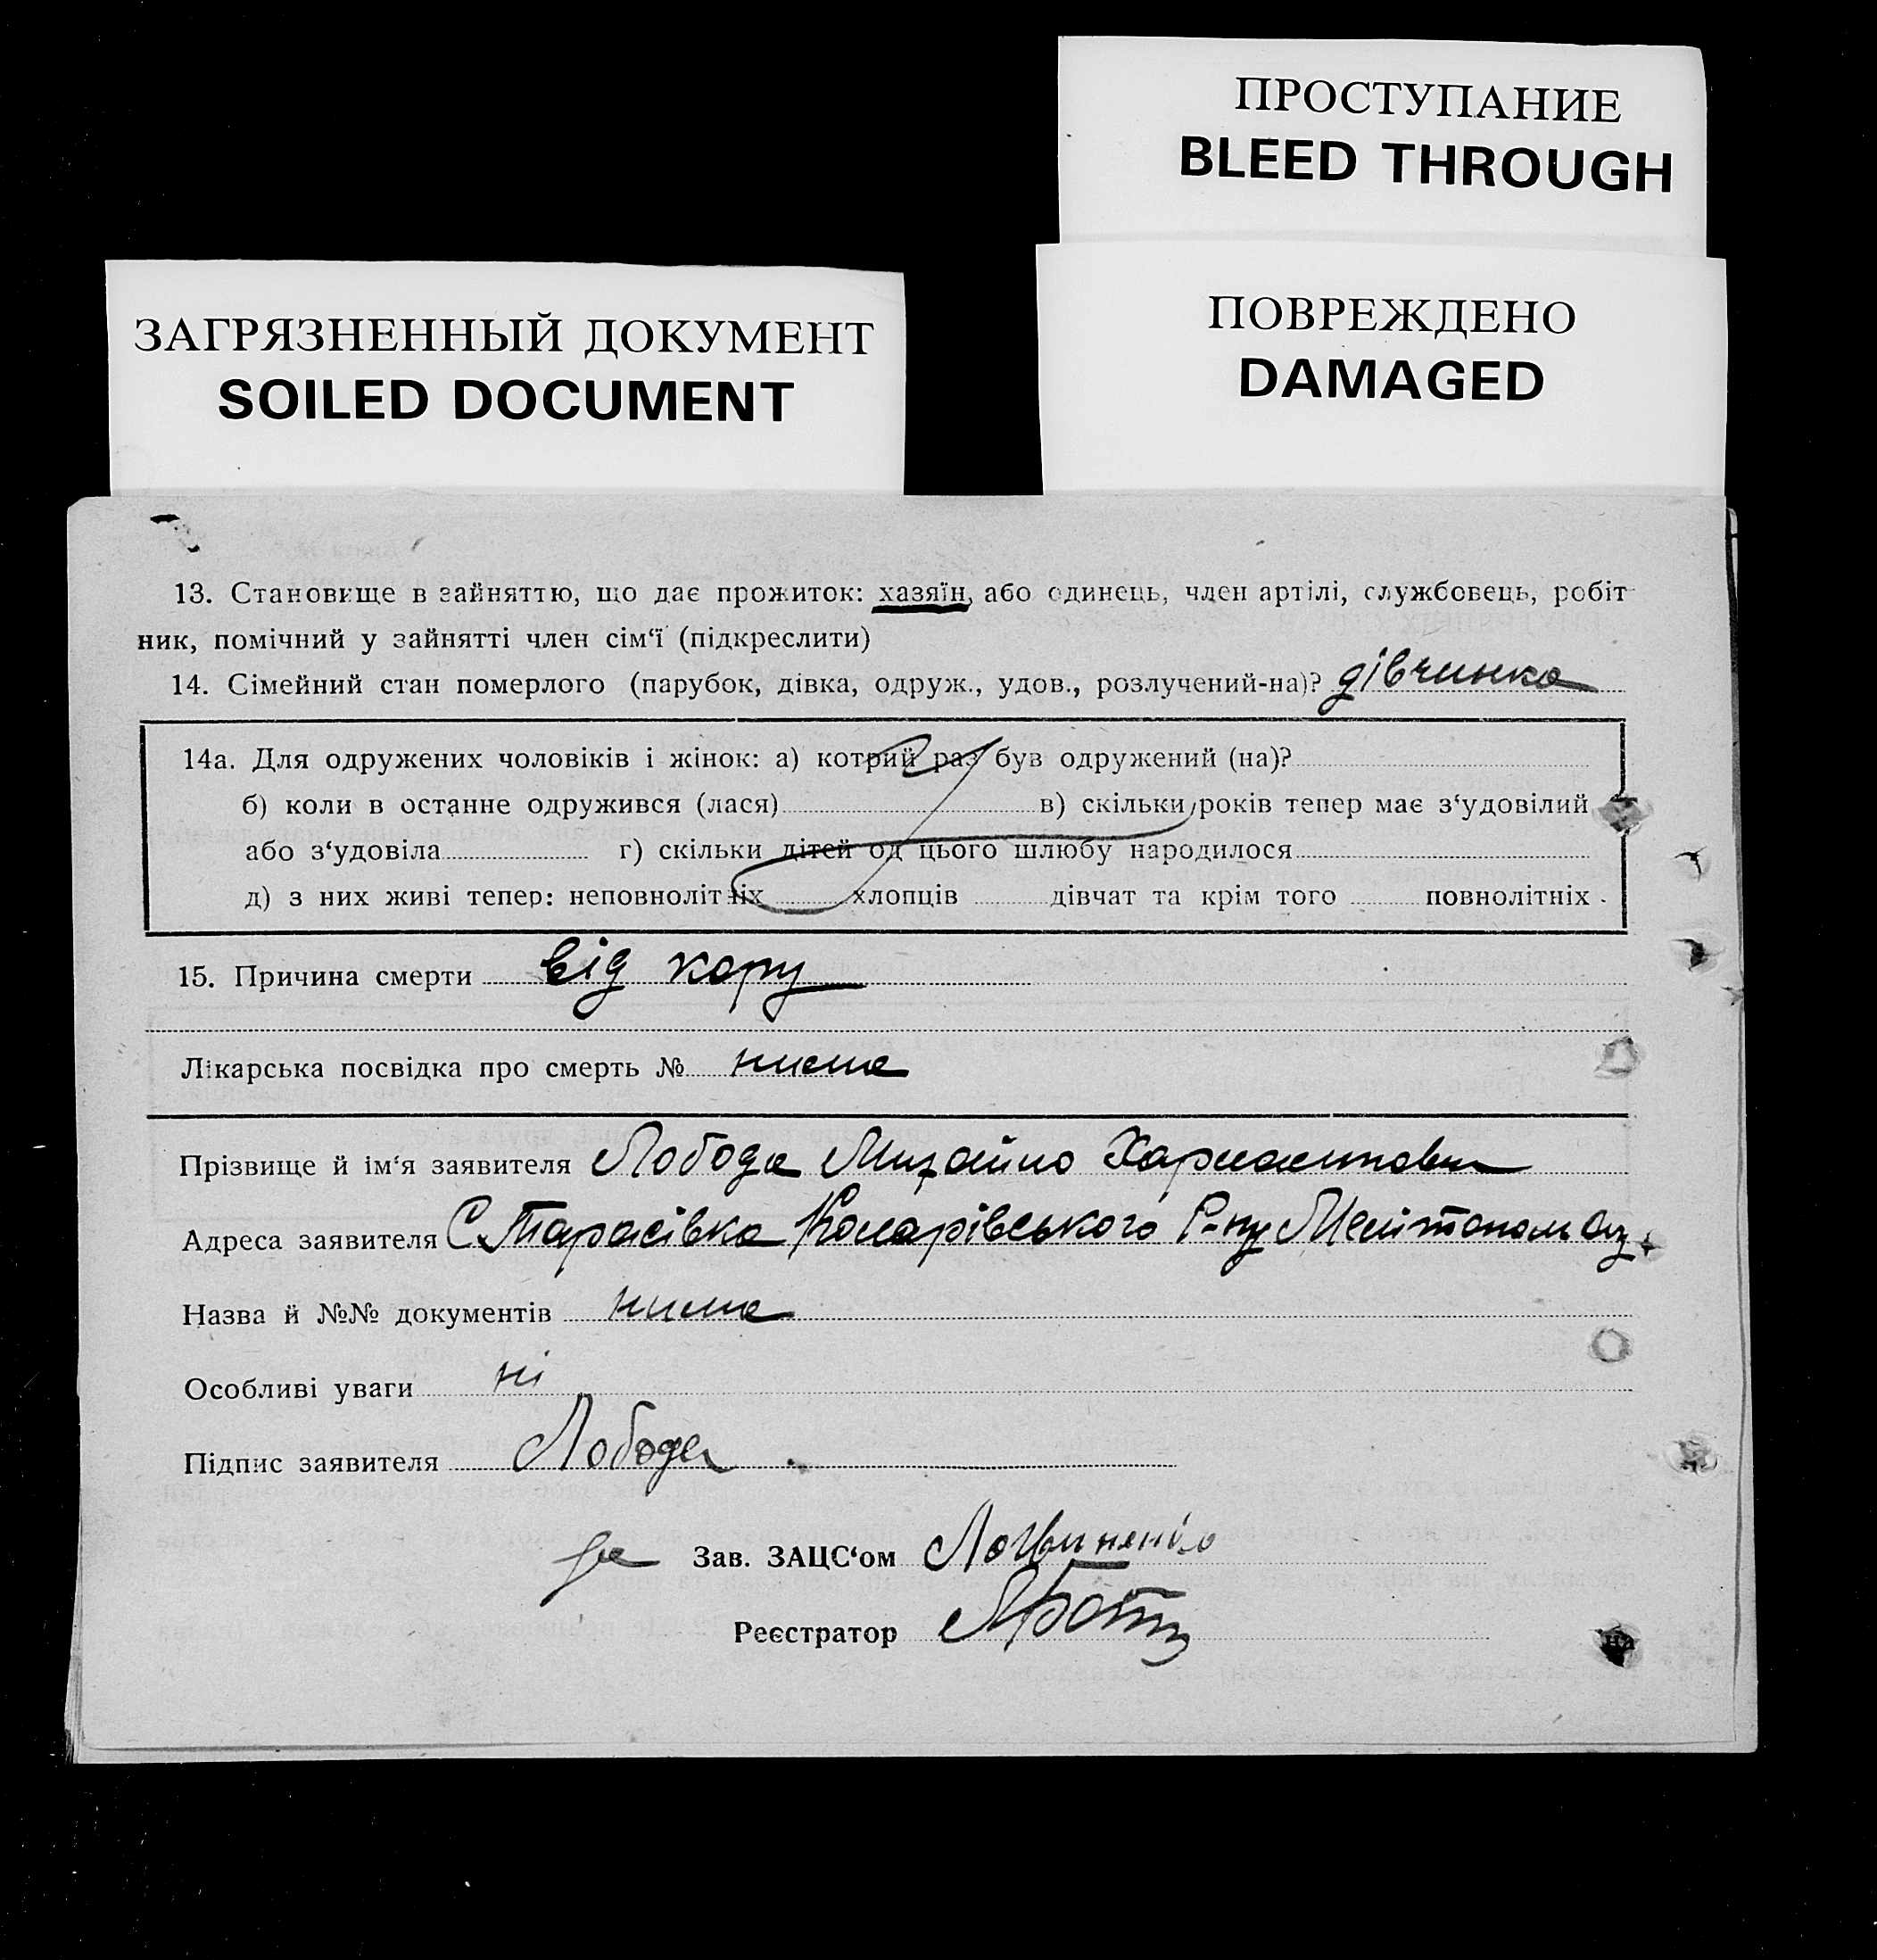 ПРОСТУПАНИЕ
BLEED THROUGH
ЗАГРЯЗНЕННЫЙ ДОКУМЕНТ
SOILED DOCUMENT
ПОВРЕЖДЕНО
DAMAGED
13. Становище в зайняттю, що дає прожиток: хазяїн, або одинець, член артілі, службовець, робіт-
ник, помічний у зайнятті член сім‘ї (підкреслити)
14. Сімейний стан померлого (парубок, дівка, одруж., удов., розлучений-на)? дівчинка
14а. Для одружених чоловіків і жінок: а) котрий раз був одружений (на)?
б) коли в останне одружився (лася) в) скільки років тепер має з‘удовілий
або з‘удовіла г) скільки дітей од цього шлюбу народилося
д) з них живі тепер: неповнолітніх хлопців дівчат та крім того повнолітніх.
15. Причина смерти від кору
Лікарська посвідка про смерть № нима
Прізвище й ім‘я заявителя Лобода Михайло
Адреса заявителя С. Тарасівка Комарівського Р-ну
Назва й №№ документів нима
Особливі уваги ні
Підпис заявителя Лобода
Зав. ЗАЦС‘ом Логвиненко
Реєстратор